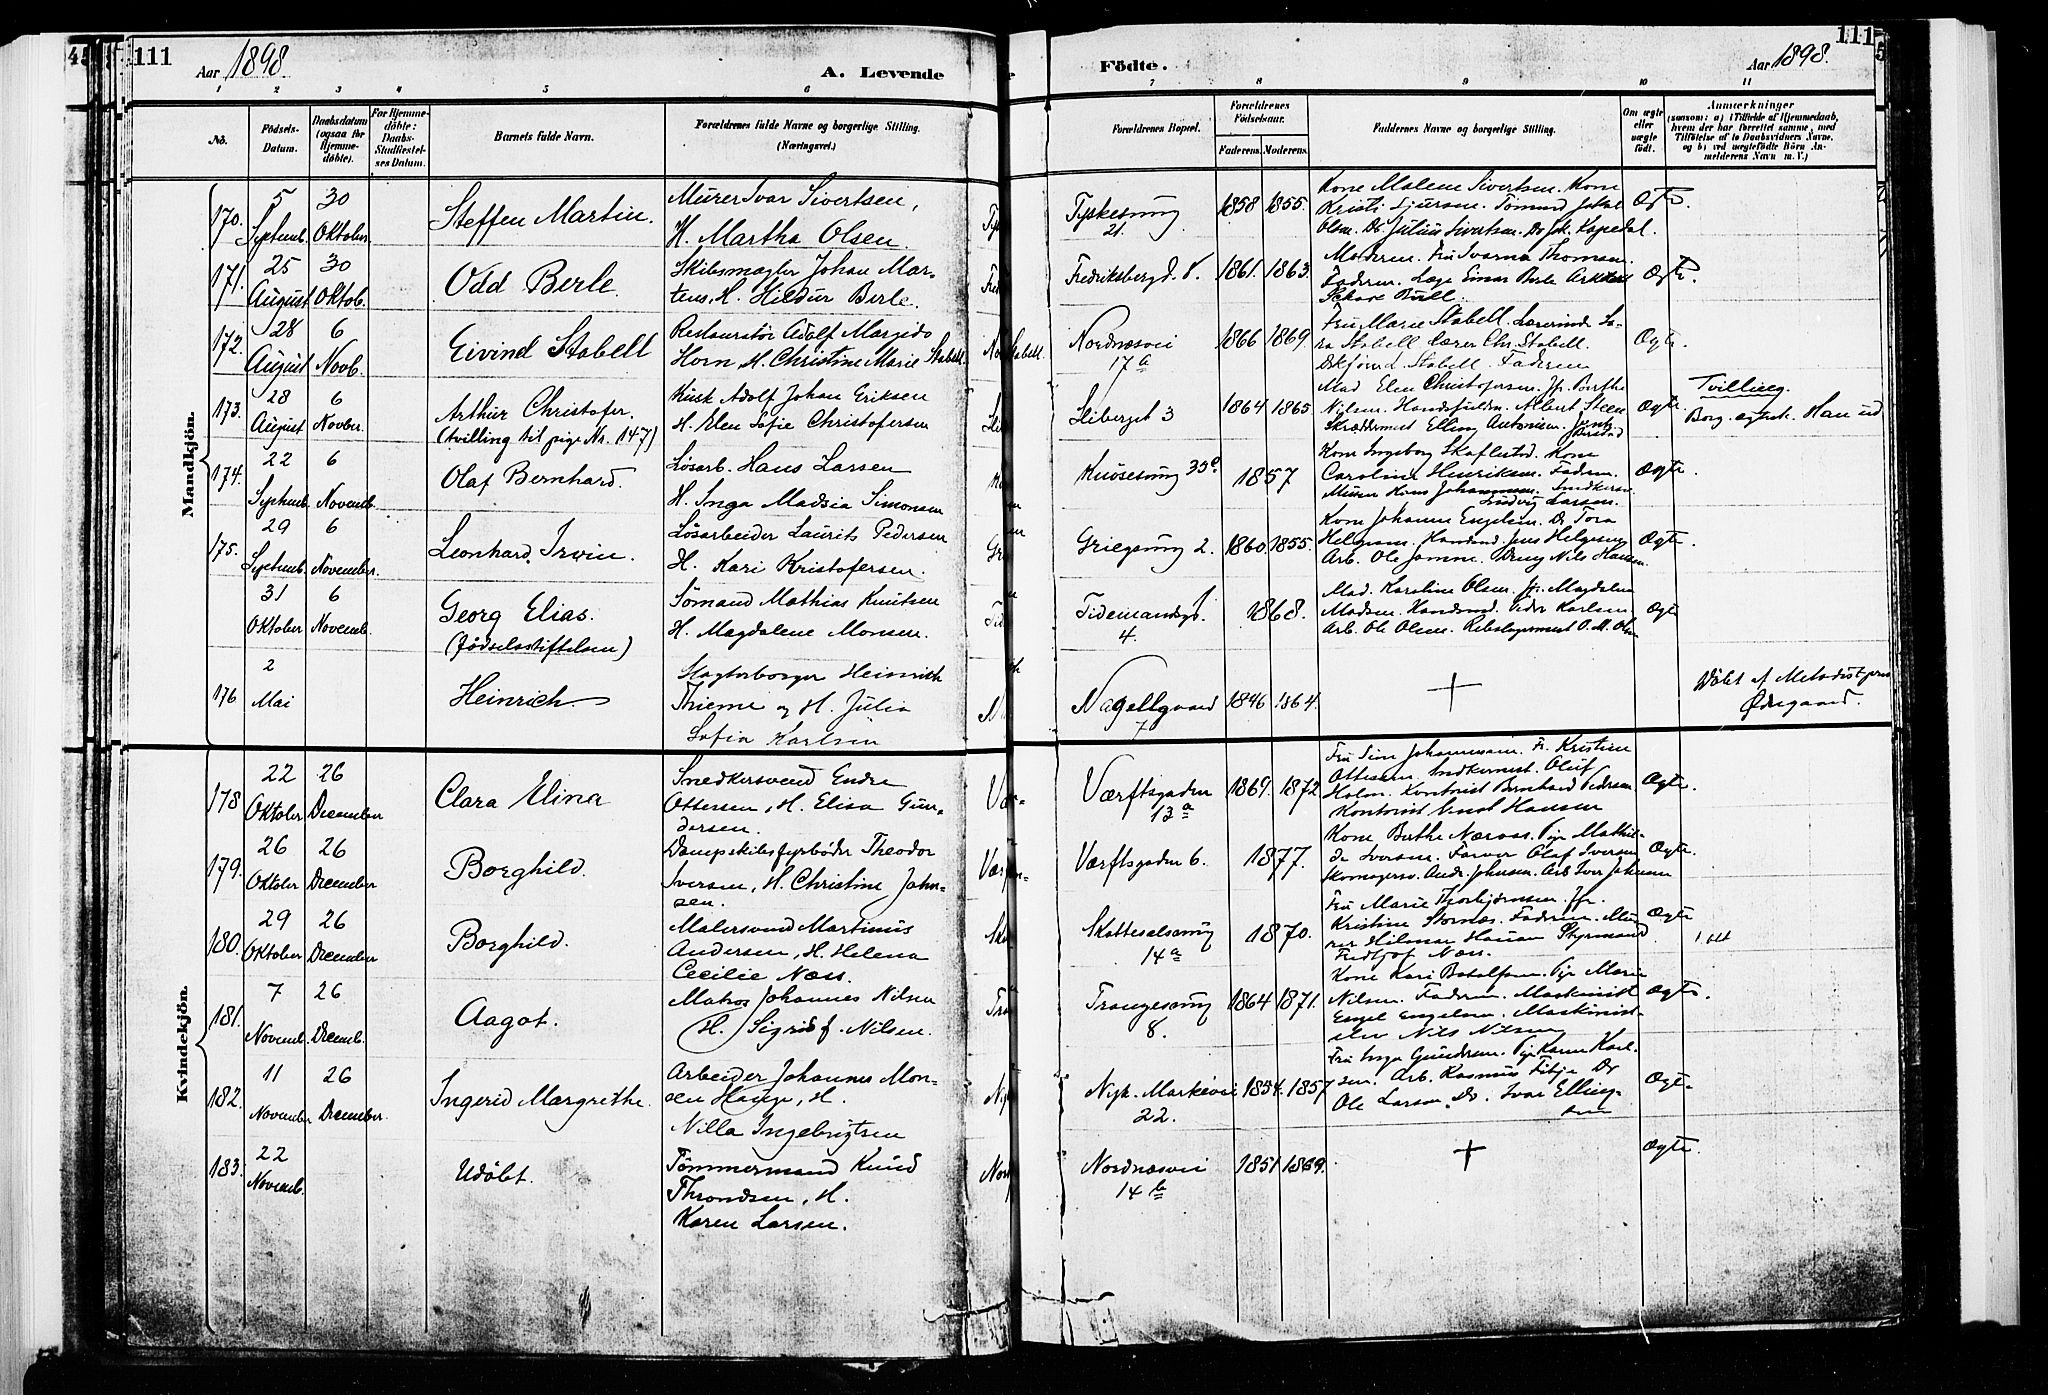 111
Aar 1898
A. Levende
Födte.
Aar 1898.
111
1 2 3 4 5 6 7 8 9 10 11
No.
Födsels-
Datum.
Daabsdatum
(ogsaa for
Hjemme-
döbte).
For Hjemme-
döbte:
Daabs-
Stadfæstel-
ses Datum.
Barnets fulde Navn.
Forældrenes fulde Navne og borgerlige Stilling.
(Næringsvei.)
Forældrenes Bopæl.
Forældrenes
Födselsaar.
Faderens. Moderens.
Faddernes Navne og borgerlige Stilling.
Om ægte
eller
uægte
født.
Anmærkninger
(saasom: a) i Tilfælde af Hjemmedaab,
hvem der har forrettet samme, med
Tilføielse af to Daabsvidners Navne.
og b) ved uægtefödte Börn An-
melderens Navn m. V.)
Mandkjön.
170. 5 Septemb. 30 Oktober.
Steffen Martin.
Murer Ivar Sivertsen,
H. Martha Olsen.
Tyskesmug
21.
1858 1855.
Kone Malene Sivertsen. Kone
Kristi Sjursen. Tömmd. Jakob
Olsen. Do Julius Sivertsen. Do Joh. Kapedal.
Ægte.
171. 25 August 30 Oktob.
Odd Berle.
Skibsmægler Johan Mar-
tens, H. Hildur Berle.
Fredriksbergd. 8.
1861. 1863.
Moderen. Fru Svarna Thomsen.
Faderen. Læge Einar Berle Arkitekt
Schak Bull.
Ægte.
172. 28 August 6 Novb.
Eivind Stabell
Restauratör Adolf Margido
Horn H. Christine Marie Stabell.
Nordnæsvei
17 b
1866 1869.
Fru Marie Stabell. Lærerinde La-
ra Stabell Lærer Chr. Stabell.
Ekspd. Stabell. Faderen
Ægte.
173. 28 August 6 Novber.
Arthur Christofer.
(tvilling til pige Nr. 147)
Kusk Adolf Johan Eriksen
H. Elen Sofie Christofersen
Sliberget 3
1864 1865
Mad Elen Christofersen. Jfr. Berthe
Nielsen. Handsfuldm. Albert Steen
Skræddermest Elling Antonisen.
Ægte
Tvilling.
174. 22 Septemb. 6 Novemb.
Olaf Bernhard.
Løsarb. Hans Larsen
H. Inga Madsia Simonsen
Knösesmug 35a
1857
Kone Ingeborg Skaflestad. Kone
Caroline Henriksen. Faderen.
Murer Hans Johannesen. Snedkersv.
Ludvig Larsen.
Ægte.
175. 29 Septemb. 6 November.
Leonhard Irvin.
Lösarbeider Laurits Pedersen
H. Kari Kristofersen.
Griegsmug 2.
1860 1855.
Kone Johanne Engelsen. Do Tora
Helgesen. Handsmd. Jens Helgesen
Arb. Ole Jamne. Dreng Nils Hansen.
Ægte.
31 Oktober 6 Novemb.
Georg Elias.
(Fødselsstiftelsen)
Sömand Mathias Knutsen
H. Magdalene Monsen.
Tidemandsgd.
4.
1868.
Mad. Karoline Olsen. Jfr. Magdalena
Madsen. Handsmd. Peder Karlsen
Arb. Ole Olsen. Rebslagermest O. M. Olsen
Ægte
176 2 Mai
Heinrich
Slagterborger Heinrich
Thieme og H. Julia
Sofia Karlsen
Nagellgaard
7
1846 1864.
+
Döbt af Metodistpræs
Ødegaard.
Kvindekjön.
178 22 Oktober 26 December
Clara Elina
Snedkersvend Endre
Ottersen, H. Elisa Gun-
dersen.
Værftsgaden
13 a
1869. 1872.
Fru Sine Johannesen. Fr. Kristine
Ottesen. Snedkermest. Oluf
Holm. Kontorist Bernhard Pedersen
Kontorist Knut Hansen
Ægte.
179. 26 Oktober 26 December
Borghild.
Dampskibsfyrbøder Theodor
Iversen, H. Christine John-
sen.
Værftsgaden 6.
1877.
Kone Berthe Næraas. Pige Mathil-
de Iversen. Farver Olaf Iversen
Skomagersv. Andr. Johnsen. Arb. Iver Johnsen
Ægte.
180. 29 Oktober 26 December
Borghild.
Malersvend Martinus
Andersen, H. Helena
Cecilie Næss.
Skottesalsmug
14 a
1870.
Fru Marie Thorbjørnsen. Jfr.
Kristine Stornæs. Faderen. Mu-
rer Hilmar Hansen Styrmand
Fridtjof Næss.
Ægte
181. 7 Novemb. 26 Decemb.
Aagot.
Matros Johannes Nilsen
(H.) Sigrid f. Nilsen.
Trangesmug
8.
1864 1871.
Kone Kari Botolfsen. Pige Marie
Nilsen. Faderen. Maskinist
Engel Engelsen. Maskinist-
elev Nils Nilsen
Ægte.
182. 11 November 26 December.
Ingerid Margrethe.
Arbeider Johannes Mon-
sen Hauge, H.
Nilla Ingebrigtsen
Nyk. Markevei
22.
1854. 1857
Fru Inga Gundersen. Pige Karen Karl-
sen. Arb. Rasmus Fitje Do
Ole Larsen. Do. Ivar Elling-
sen
Ægte
183. 22 Novemb.
Udöbt.
Tömmermand Knud
Throndsen, H.
Karen Larsen.
Nordnæsvei
14 b
1851. 1859.
+
Ægte.